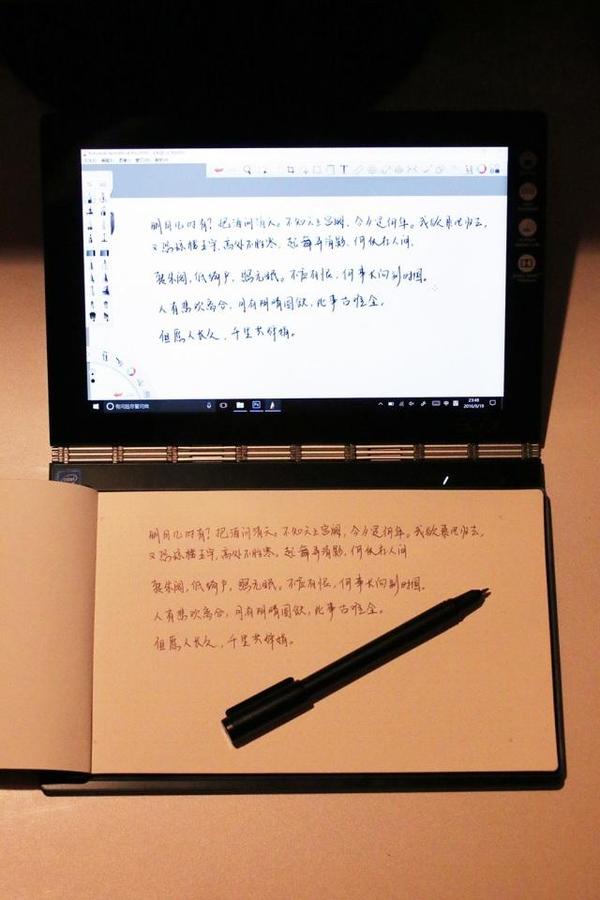 明月几时有？把酒问青天。不知天上宫阙，今夕是何年。我欲乘风归去，
又恐琼楼玉宇，高处不胜寒。起舞弄清影，何似在人间.
转朱阁，低绮户，照无眠。不应有恨，何事长向别时圆。
人有悲欢离合，月有阴晴圆缺，此事古难全。
但愿人长久，千里共婵娟。
有问题尽管问我
23:48
intel
明月几时有？把酒问青天。不知天上宫阙，今夕是何年。我欲乘风归去，
又恐琼楼玉宇，高处不胜寒。起舞弄清影，何似在人间
转朱阁，低绮户，照无眠。不应有恨，何事长向别时圆。
人有悲欢离合，月有阴晴圆缺，此事古难全。
但愿人长久，千里共婵娟。